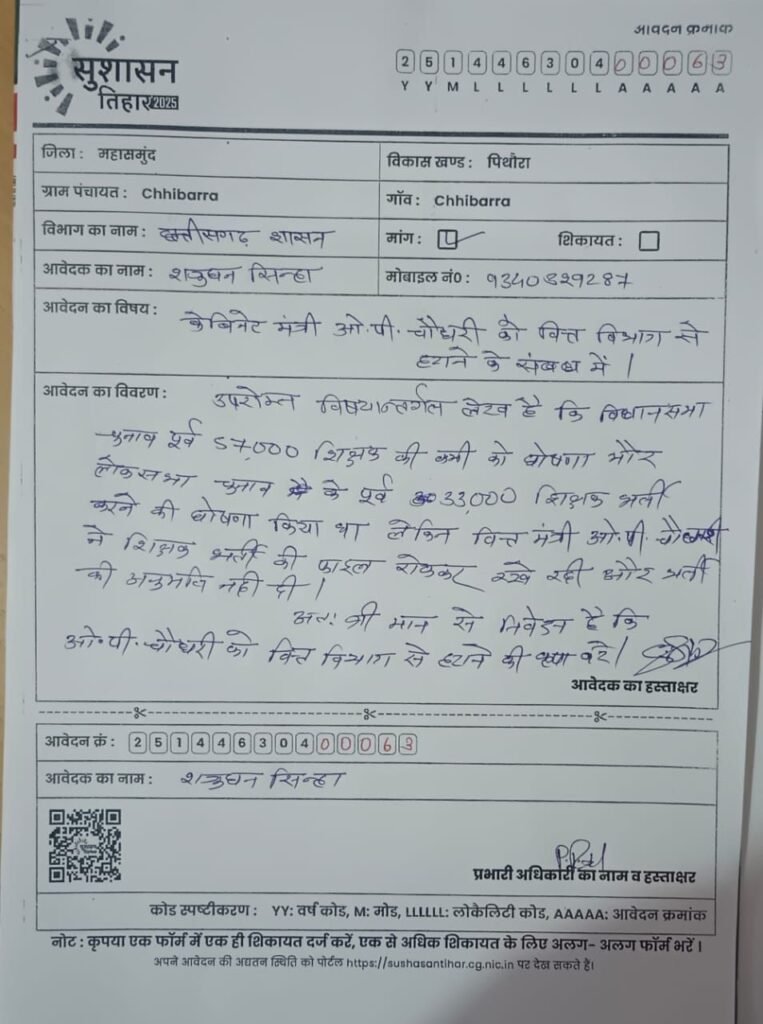 आवदन क्रमाक
सुशासन
तिहार 2025
2 5 1 4 4 6 3 0 4 0 0 0 6 3
Y Y M L L L L L L A A A A A
जिला : महासमुंद
विकास खण्ड : पिथौरा
ग्राम पंचायत : Chhibarra
गाँव : Chhibarra
विभाग का नाम : छत्तीसगढ़ शासन
मांग :
शिकायत :
आवेदक का नाम : शत्रुघन सिन्हा
मोबाइल नं० : 9340829287
आवेदन का विषय : केबिनेट मंत्री ओ.पी. चौधरी को वित्त विभाग से
हटाने के संबंध में |
आवेदन का विवरण : उपरोक्त विषयान्तर्गत लेख है कि विधानसभा
चुनाव पूर्व 57,000 शिक्षक की कमी को घोषणा और
लोकसभा चुनाव के पूर्व 33,000 शिक्षक भर्ती
करने की घोषणा किया था लेकिन वित्त मंत्री ओ.पी. चौधरी
ने शिक्षक भर्ती की फाइल रोककर रखे और भर्ती
की अनुमति नही दी |
अतः श्री मान से निवेदन है कि
ओ.पी. चौधरी को वित्त विभाग से हटाने की कृपा करे |
आवेदक का हस्ताक्षर
आवेदन क्रं : 2 5 1 4 4 6 3 0 4 0 0 0 6 3
आवेदक का नाम : शत्रुघन सिन्हा
प्रभारी अधिकारी का नाम व हस्ताक्षर
कोड स्पष्टीकरण : YY: वर्ष कोड, M: मोड, LLLLLL: लोकैलिटी कोड, AAAAA: आवेदन क्रमांक
नोट : कृपया एक फॉर्म में एक ही शिकायत दर्ज करें, एक से अधिक शिकायत के लिए अलग- अलग फॉर्म भरें ।
अपने आवेदन की अद्यतन स्थिति को पोर्टल https://sushasantihar.cg.nic.in पर देख सकते है।